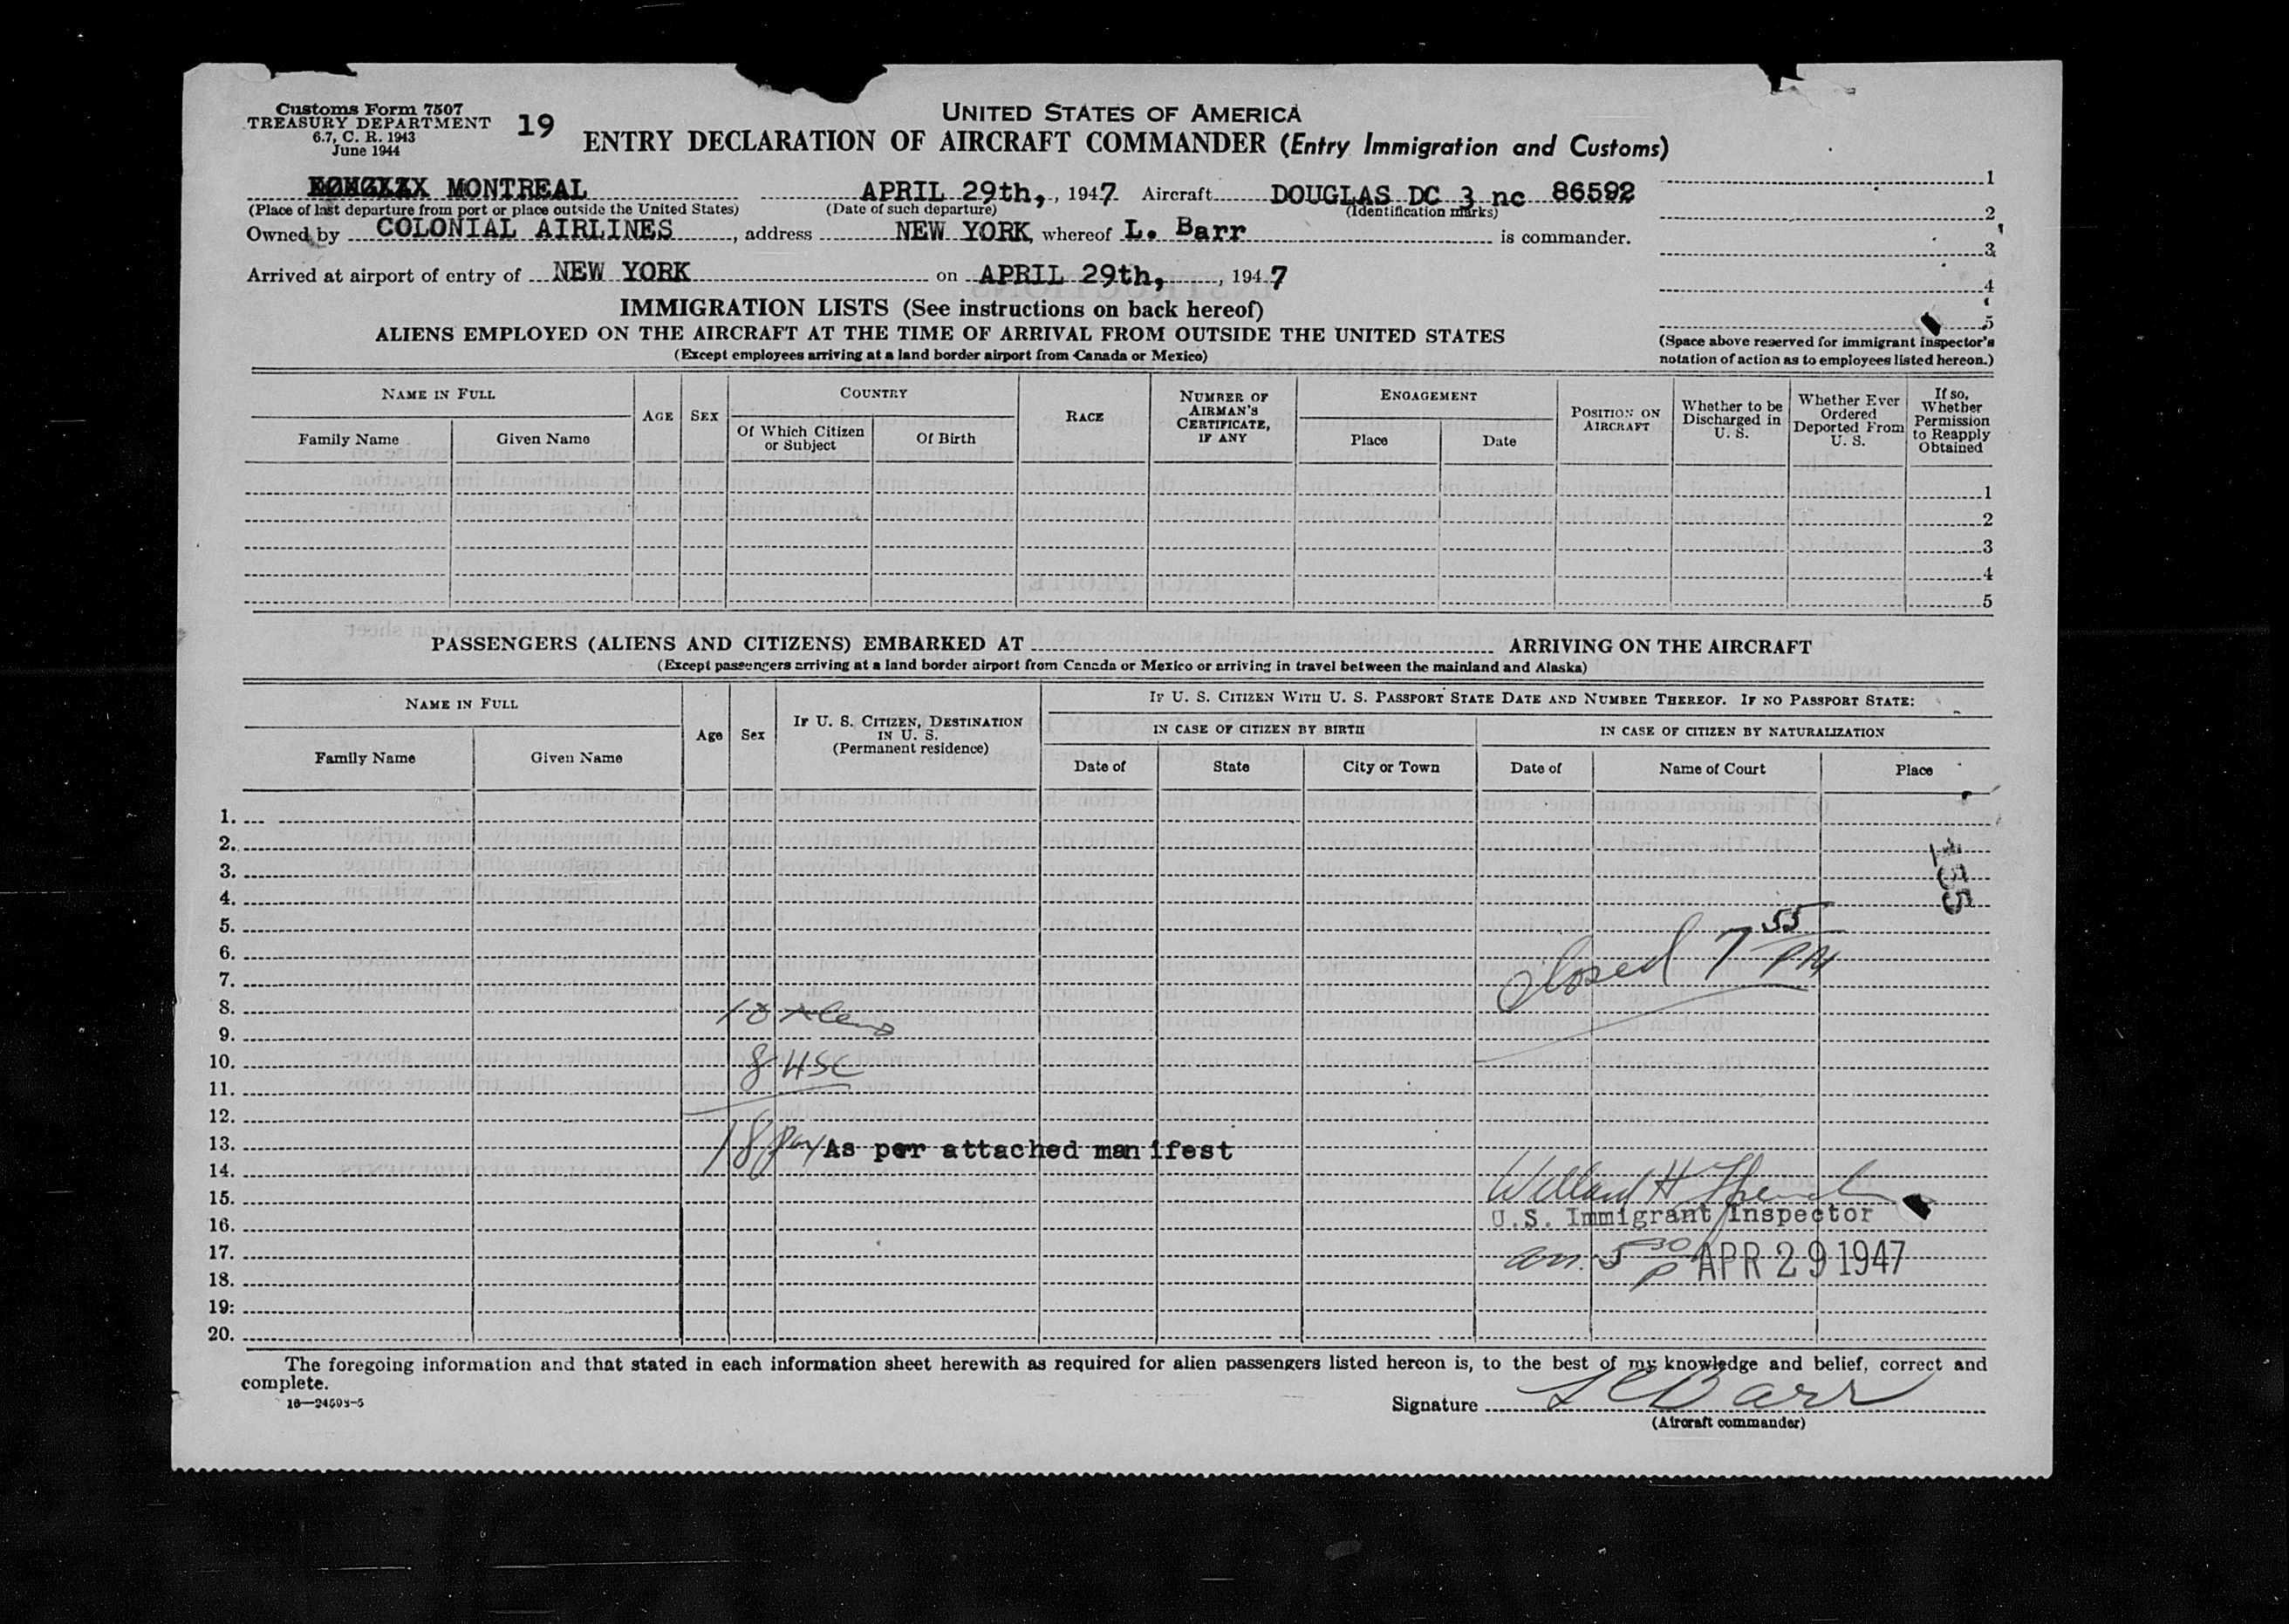 Customs Form 7507
TREASURY DEPARTMENT
6.7, C. R. 1943
June 1944
19
UNITED STATES OF AMERICA
ENTRY DECLARATION OF AIRCRAFT COMMANDER (Entry Immigration and Customs)
MONTREAL APRIL 29th, , 1947 Aircraft DOUGLAS DC 3 nc 86592
(Place of last departure from port or place outside the United States) (Date of such departure) (Identification marks)
Owned by COLONIAL AIRLINES , address NEW YORK, whereof L. Barr is commander.
Arrived at airport of entry of NEW YORK on APRIL 29th, , 1947
1
2
3
4
5
(Space above reserved for immigrant inspector's
notation of action as to employees listed hereon.)
IMMIGRATION LISTS (See instructions on back hereof)
ALIENS EMPLOYED ON THE AIRCRAFT AT THE TIME OF ARRIVAL FROM OUTSIDE THE UNITED STATES
(Except employees arriving at a land border airport from Canada or Mexico)
NAME IN FULL
Family Name Given Name
AGE
SEX
COUNTRY
Of Which Citizen or Subject
Of Birth
RACE
NUMBER OF AIRMAN'S CERTIFICATE, IF ANY
ENGAGEMENT
Place Date
POSITION ON AIRCRAFT
Whether to be Discharged in U. S.
Whether Ever Ordered Deported From U. S.
If so, Whether Permission to Reapply Obtained
1
2
3
4
5
PASSENGERS (ALIENS AND CITIZENS) EMBARKED AT ARRIVING ON THE AIRCRAFT
(Except passengers arriving at a land border airport from Canada or Mexico or arriving in travel between the mainland and Alaska)
NAME IN FULL
Family Name Given Name
Age
Sex
IF U. S. CITIZEN, DESTINATION IN U. S.
(Permanent residence)
IF U. S. CITIZEN WITH U. S. PASSPORT STATE DATE AND NUMBER THEREOF. IF NO PASSPORT STATE:
IN CASE OF CITIZEN BY BIRTH
Date of State City or Town
IN CASE OF CITIZEN BY NATURALIZATION
Date of Name of Court Place
1.
2.
3.
4.
5.
6.
7.
8.
9.
10.
11.
12.
13.
14.
15.
16.
17.
18.
19:
20.
155
closed 7 55 PM
10 Aliens
8 USC
18 Pax As per attached manifest
U.S. Immigrant Inspector
arr. 5 30 P APR 29 1947
The foregoing information and that stated in each information sheet herewith as required for alien passengers listed hereon is, to the best of my knowledge and belief, correct and
complete.
Signature L C Barr
(Aircraft commander)